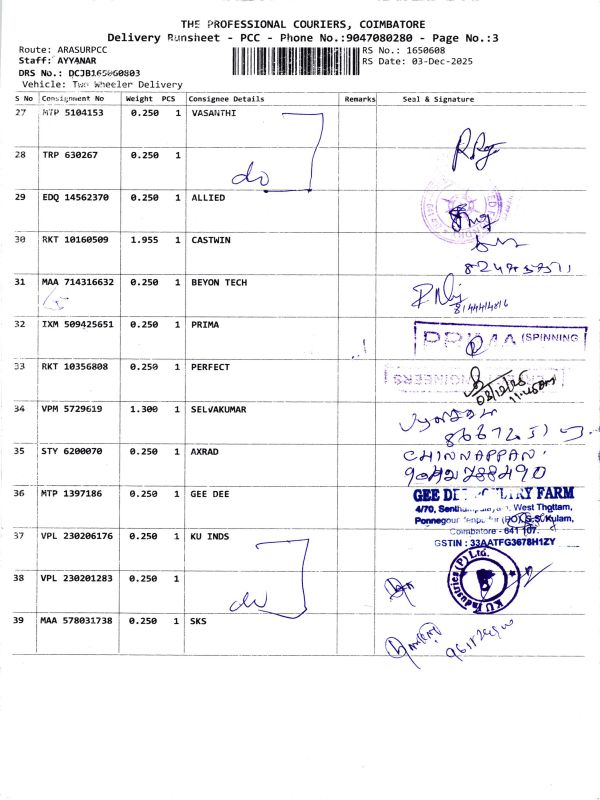 THE PROFESSIONAL COURIERS, COIMBATORE
Delivery Runsheet - PCC - Phone No.:9047080280 - Page No.:3
Route: ARASURPCC
RS No.: 1650608
Staff: AYYANAR
RS Date: 03-Dec-2025
DRS No.: DCJB165060803
Vehicle: Two Wheeler Delivery
S No Consignment No Weight PCS Consignee Details Remarks Seal & Signature
27 MTP 5104153 0.250 1 VASANTHI
28 TRP 630267 0.250 1
do
29 EDQ 14562370 0.250 1 ALLIED
30 RKT 10160509 1.955 1 CASTWIN
31 MAA 714316632 0.250 1 BEYON TECH
32 IXM 509425651 0.250 1 PRIMA
(SPINNING
33 RKT 10356808 0.250 1 PERFECT
03/12/25
34 VPM 5729619 1.300 1 SELVAKUMAR
35 STY 6200070 0.250 1 AXRAD
CHINNAPPAN
9042788490
36 MTP 1397186 0.250 1 GEE DEE
GEE DEE FARM
4/70, West Thottam,
Coimbatore - 641 107.
GSTIN : 33AATFG3678H1ZY
37 VPL 230206176 0.250 1 KU INDS
KU Industries (P) Ltd.
38 VPL 230201283 0.250 1
do
39 MAA 578031738 0.250 1 SKS